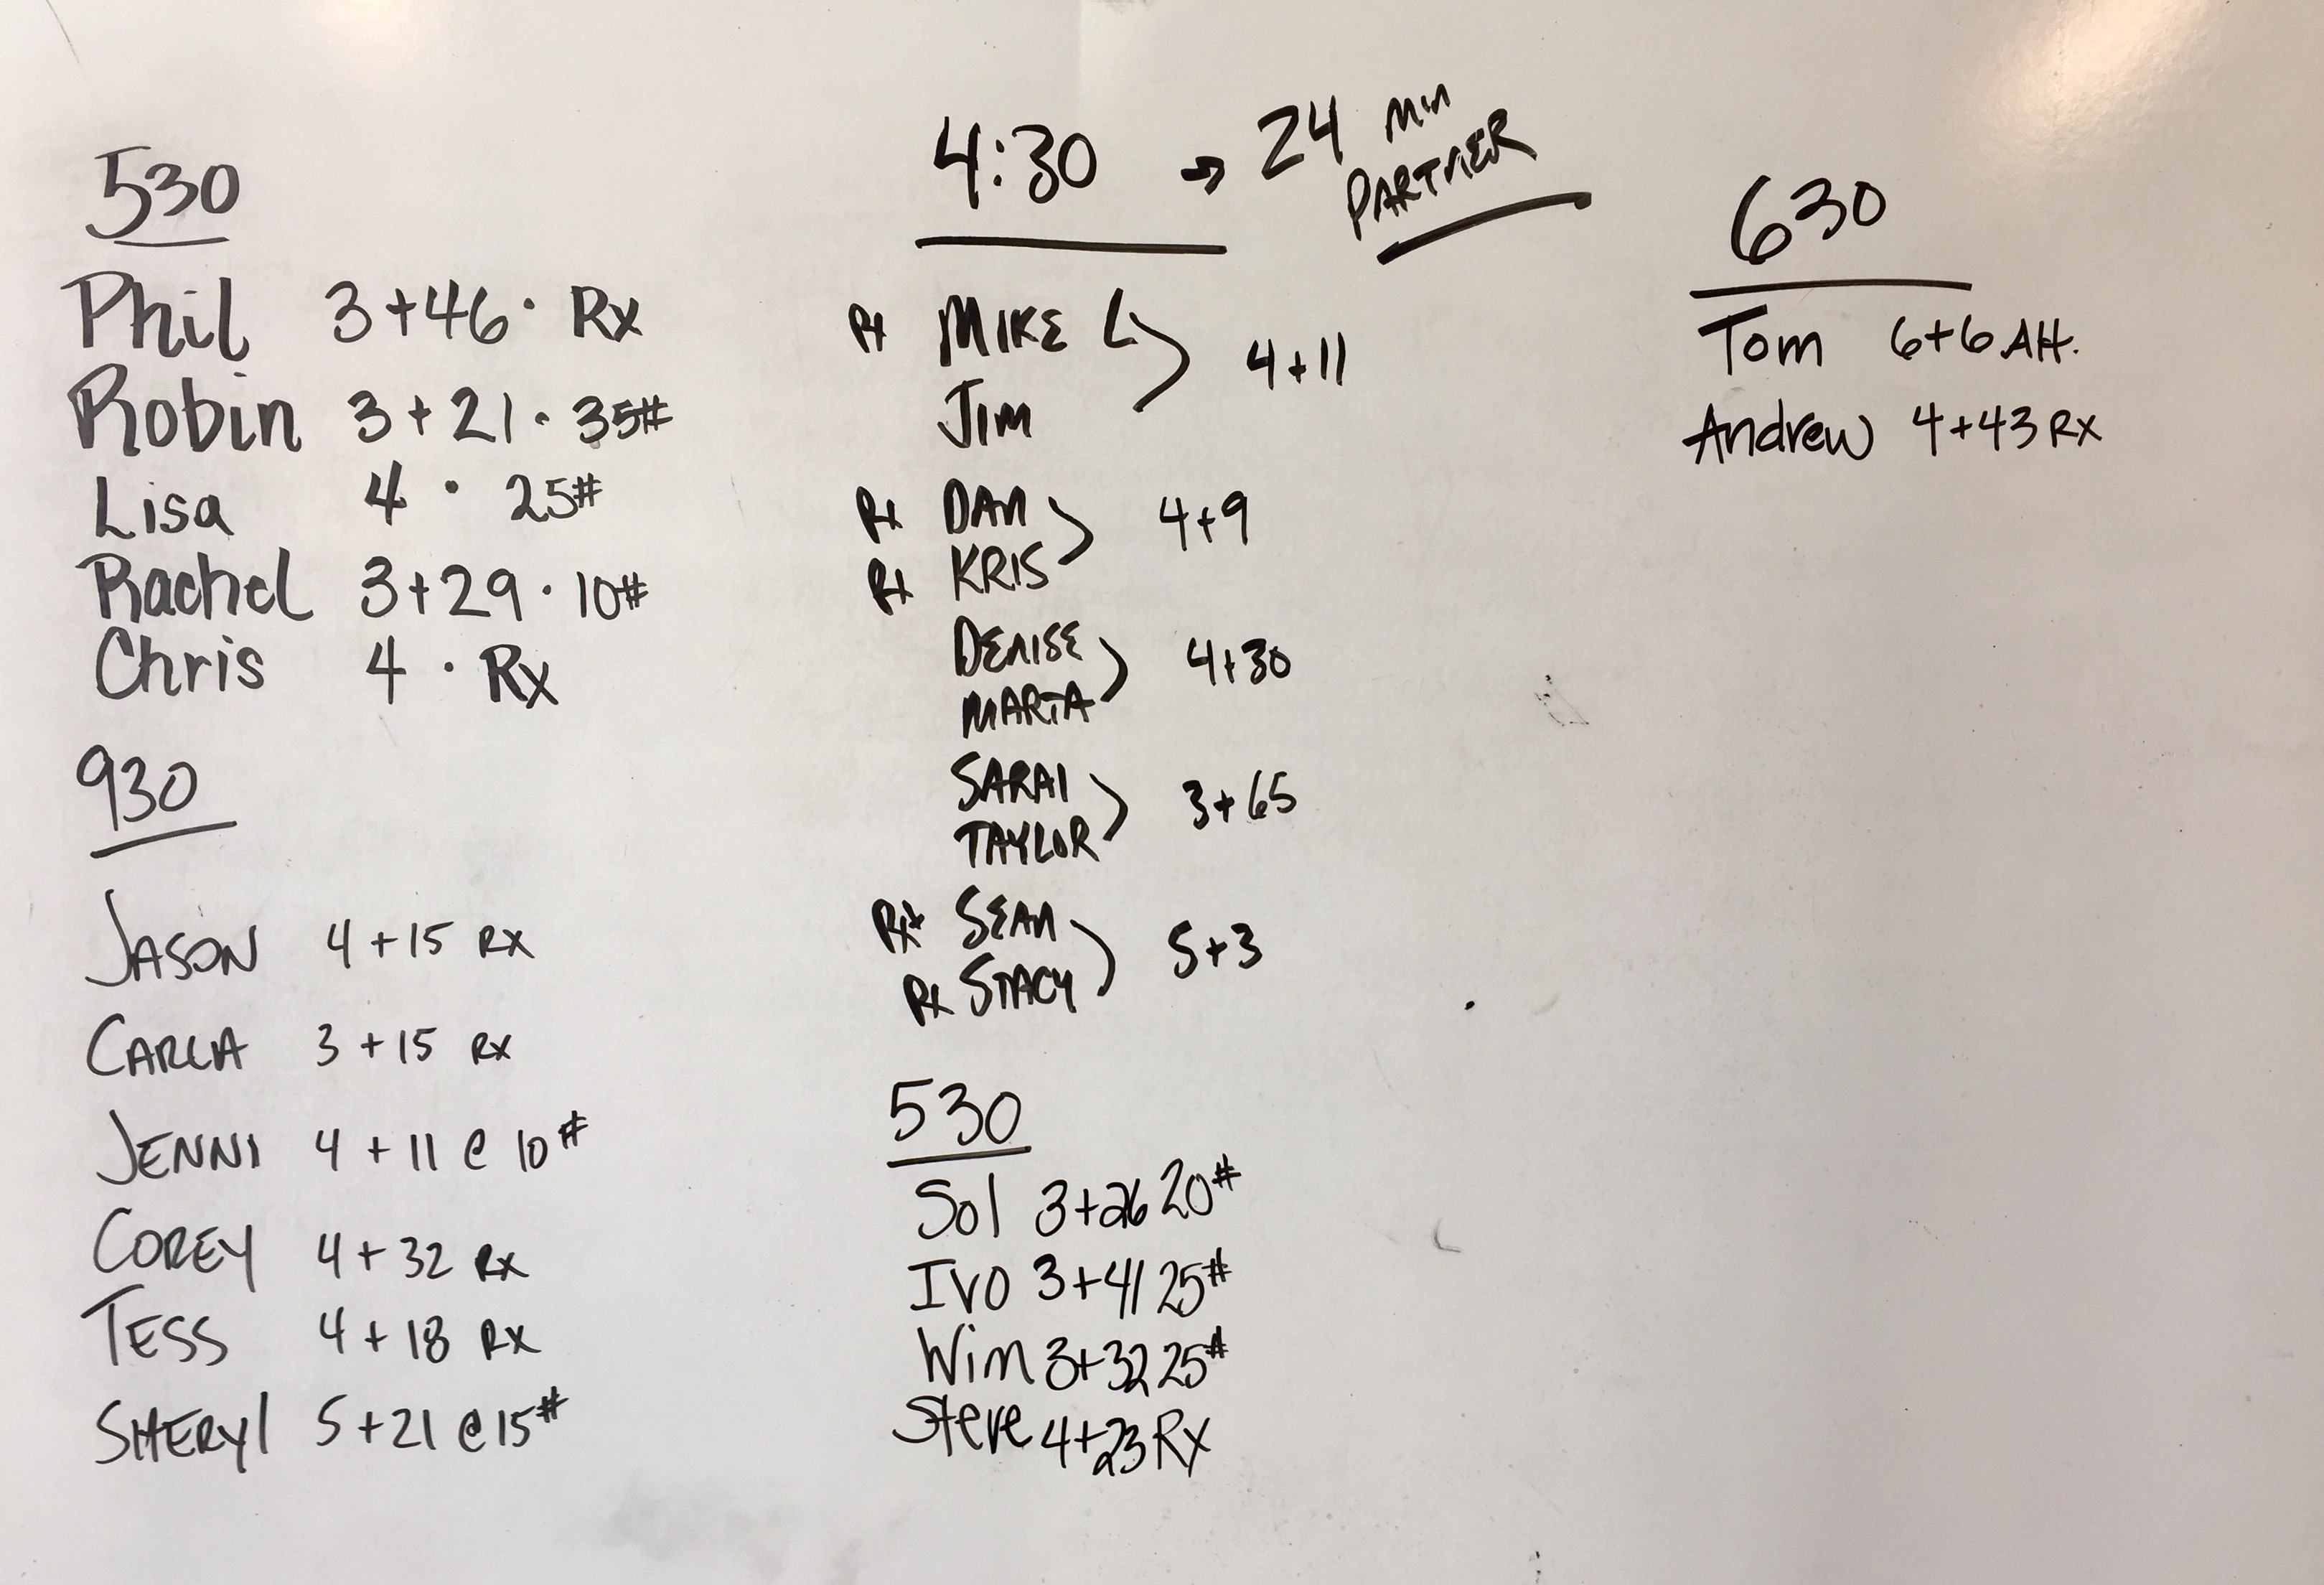 530
Phil 3+46 · Rx
Robin 3+21 · 35#
Lisa 4 · 25#
Rachel 3+29 · 10#
Chris 4 · Rx
930
JASON 4+15 RX
CARLA 3+15 RX
JENNI 4+11 @ 10#
COREY 4+32 RX
TESS 4+18 RX
SHERYl 5+21 @ 15#
4:30 → 24 MIN
PARTNER
Rx MIKE L
4+11
JIM
Rx DAN
4+9
Rx KRIS
DENISE
4+30
MARTA
SARAI
3+65
TAYLOR
Rx+ SEAN
5+3
Rx STACY
530
Sol 3+26 20#
IVO 3+41 25#
Wim 3+32 25#
Steve 4+23 Rx
630
Tom 6+6 Alt.
Andrew 4+43 RX